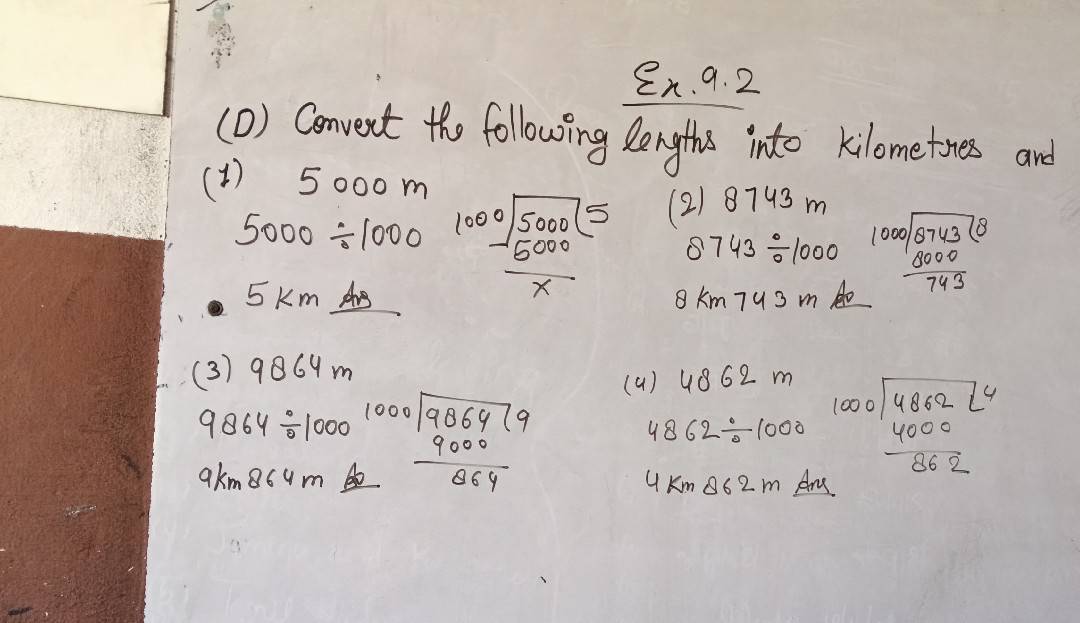 Ex. 9.2
(D) Convert the following lengths into kilometres and
(1) 5000 m
5000 ÷ 1000
1000 5000 5
- 5000
x
5 Km Ans
(2) 8743 m
8743 ÷ 1000
1000 8743 8
8000
743
8 Km 743 m
(3) 9864 m
9864 ÷ 1000
1000 9864 9
9000
864
9km 864 m
(4) 4862 m
4862 ÷ 1000
1000 4862 4
4000
862
4 Km 862 m Ans